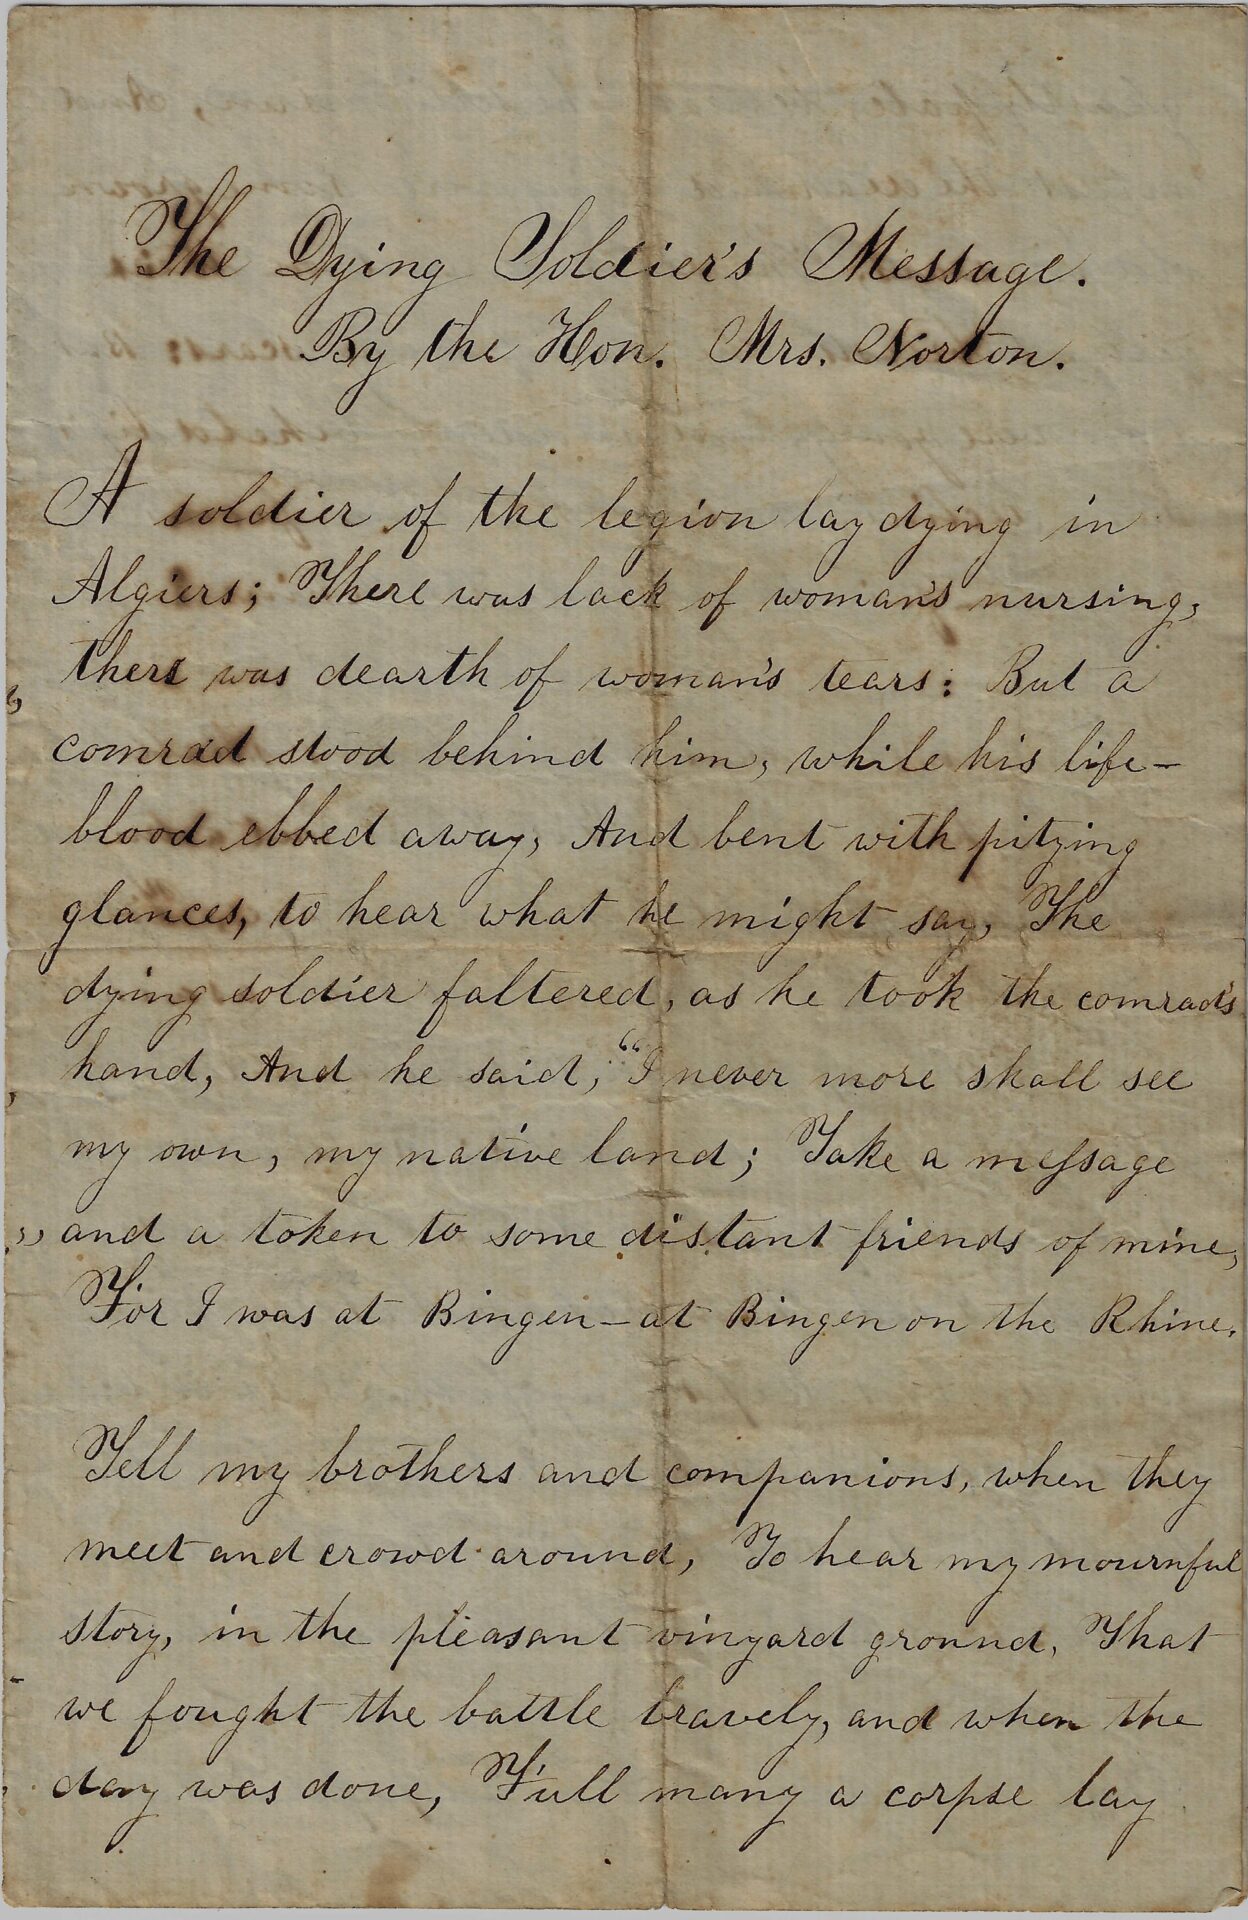 The Dying Soldier's Message.
By the Hon. Mrs. Norton.
A soldier of the legion lay dying in
Algiers; There was lack of woman's nursing,
there was dearth of woman's tears: But a
comrad stood behind him, while his life-
blood ebbed away, And bent with pitying
glances, to hear what he might say, The
dying soldier faltered, as he took the comrad's
hand, And he said, "I never more shall see
my own, my native land; Take a message
and a token to some distant friends of mine,
For I was at Bingen — at Bingen on the Rhine.
Tell my brothers and companions, when they
meet and crowd around, To hear my mournful
story, in the pleasant vinyard ground, That
we fought the battle bravely, and when the
day was done, Full many a corpse lay